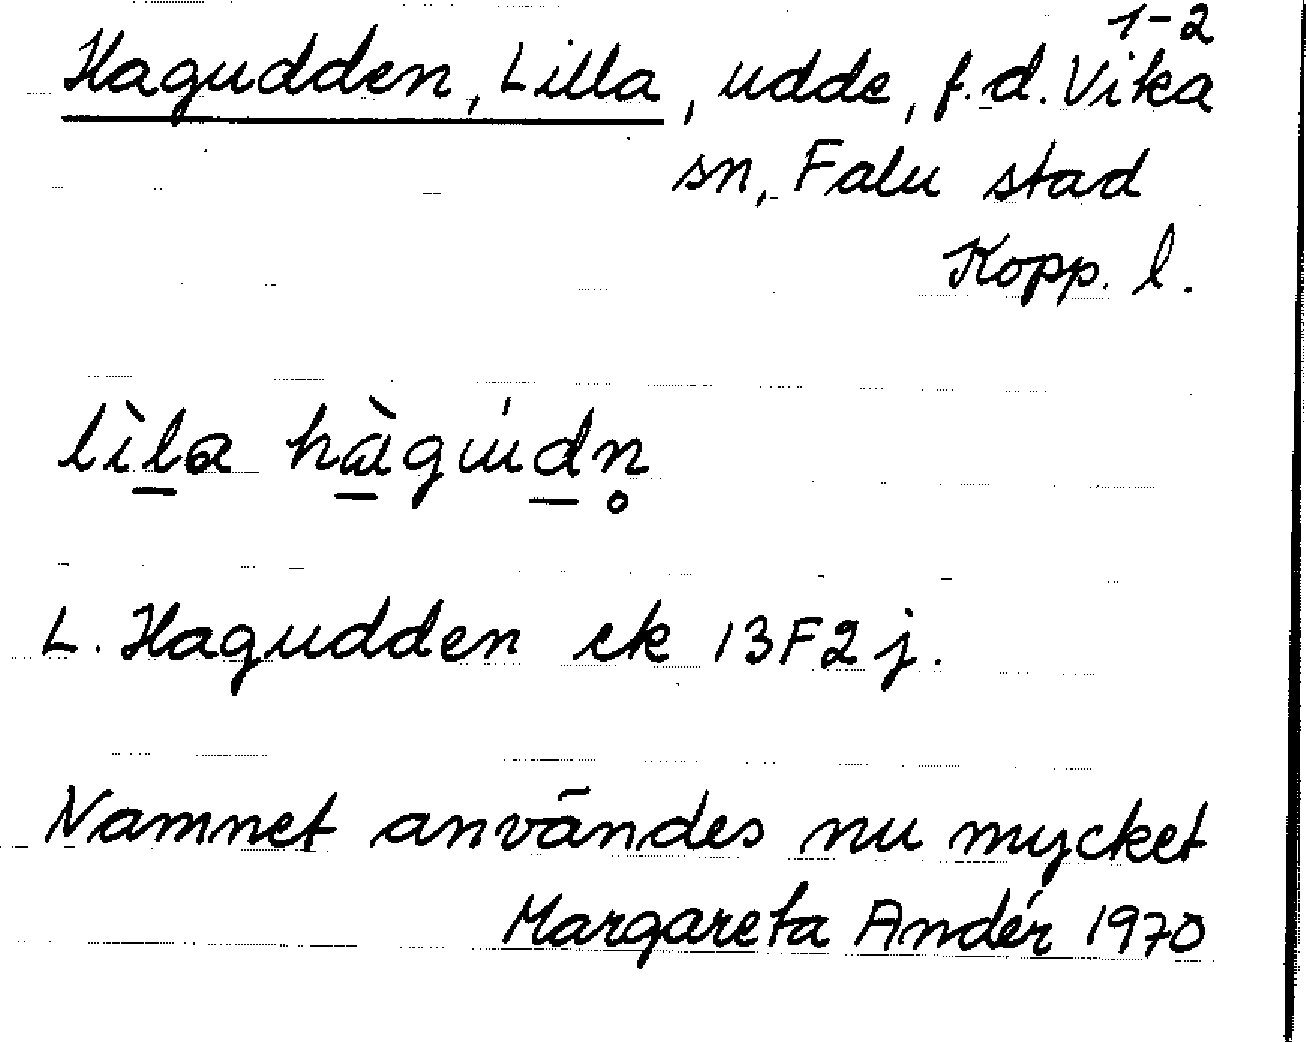 1-2
Hagudden, Lilla, udde, f.d. Vika
sn, Falu stad
Kopp. l.
lìla hàgudn̥
L. Hagudden ek 13F2j.
Namnet användes nu mycket
Margareta Andér 1970